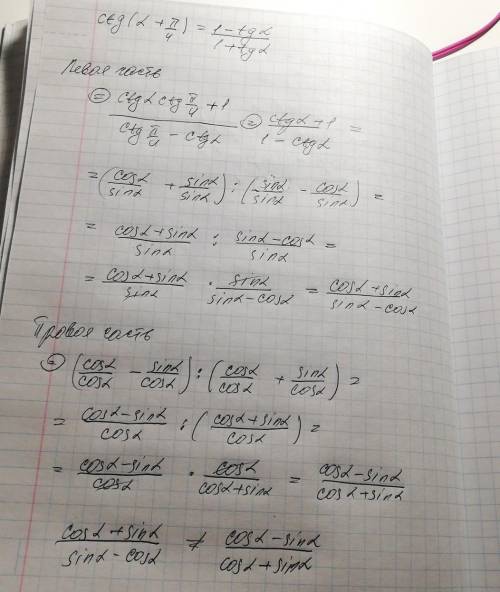 ctg(α + π/4) = (1 - tgα)/(1 + tgα)
Левая часть
⊜ (ctgα ctg π/4 + 1)/(ctg π/4 - ctgα) ⊜ (ctgα + 1)/(1 - ctgα) =
= (cosα/sinα + sinα/sinα) : (sinα/sinα - cosα/sinα) =
= (cosα + sinα)/sinα : (sinα - cosα)/sinα =
= (cosα + sinα)/sinα · sinα/(sinα - cosα) = (cosα + sinα)/(sinα - cosα)
Правая часть
⊜ (cosα/cosα - sinα/cosα) : (cosα/cosα + sinα/cosα) =
= (cosα - sinα)/cosα : ((cosα + sinα)/cosα) =
= (cosα - sinα)/cosα · cosα/(cosα + sinα) = (cosα - sinα)/(cosα + sinα)
(cosα + sinα)/(sinα - cosα) ≠ (cosα - sinα)/(cosα + sinα)